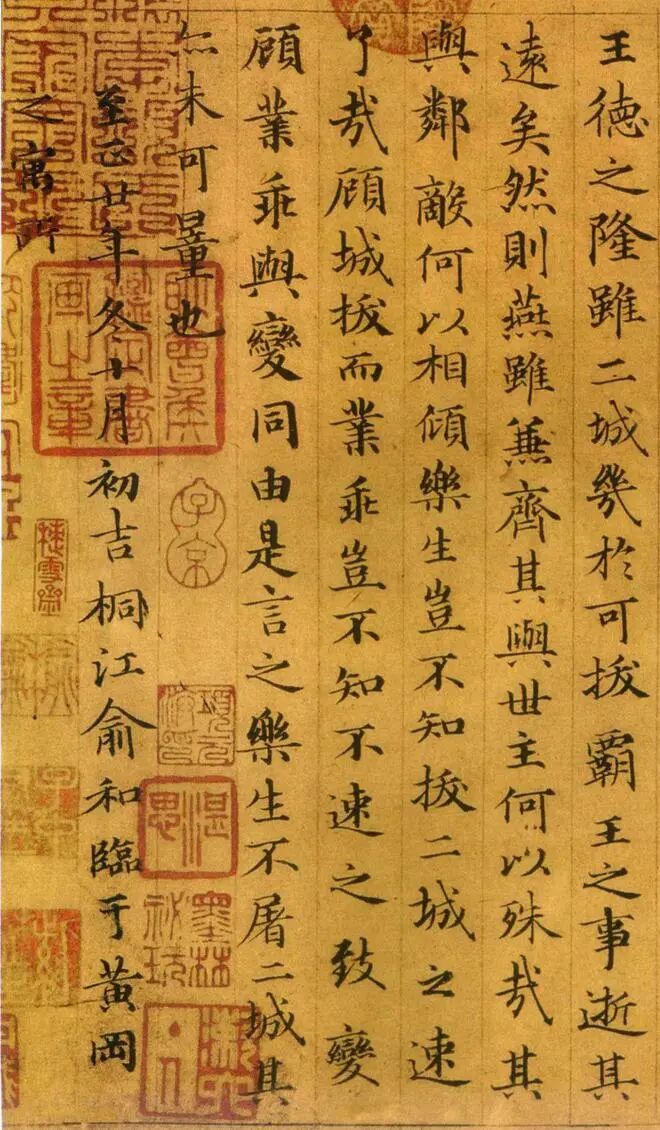 王德之隆雖二城幾於可拔霸王之事逝其
遠矣然則燕雖兼齊其與世主何以殊哉其
與鄰敵何以相傾樂生豈不知拔二城之速
了哉顧城拔而業乖豈不知不速之致變
顧業乖與變同由是言之樂生不屠二城其
亦未可量也
至正廿年冬十月初吉桐江俞和臨于黃岡
之寓所
子京
項元汴印
墨林祕玩